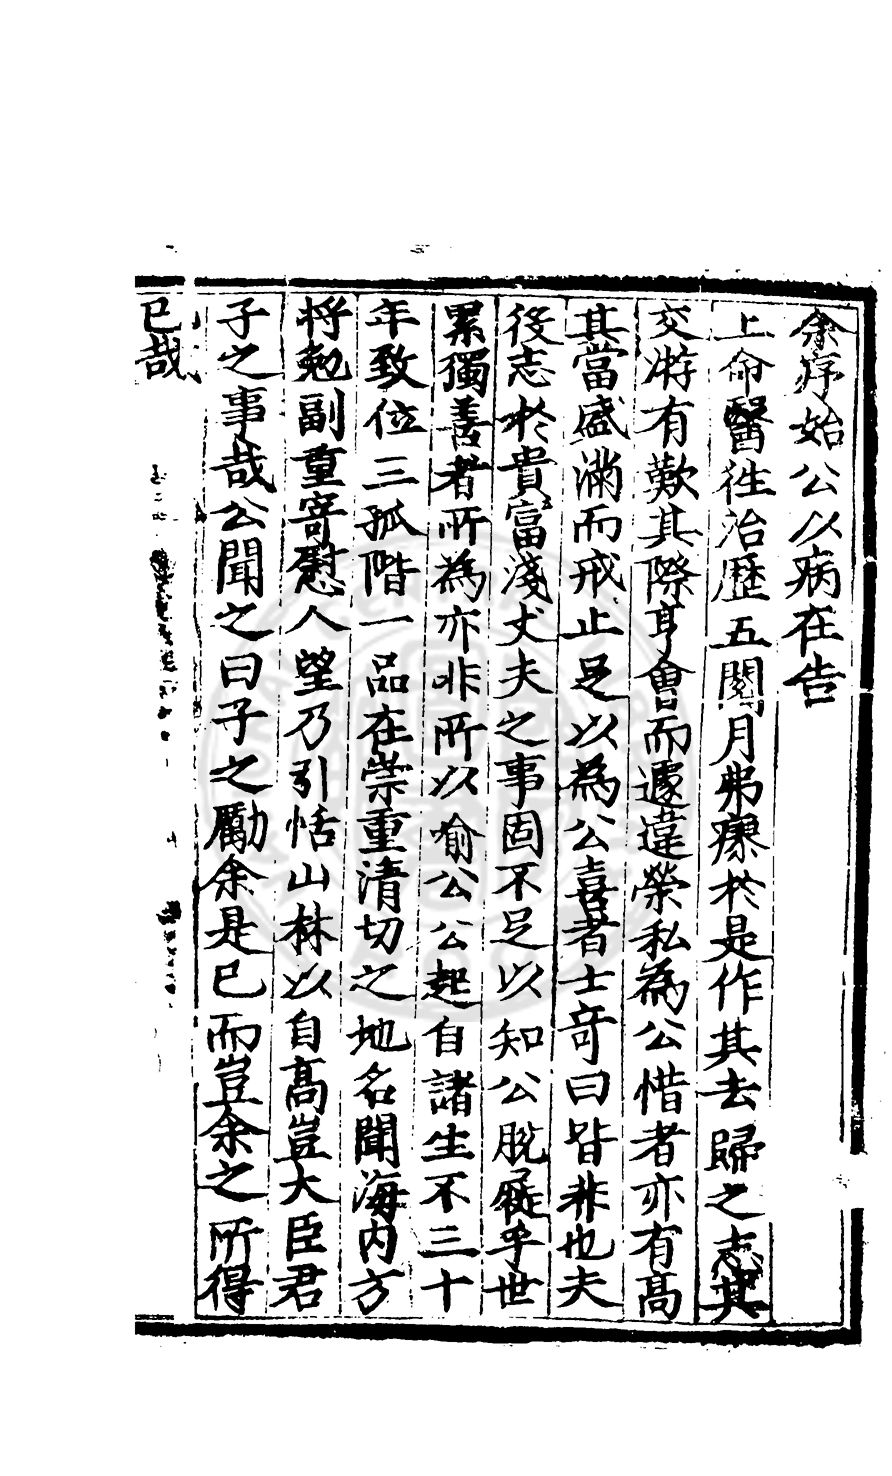 余序始公以病在告
上命醫往治歷五閱月弗瘳於是作其去歸之志其
交游有歎其際亨會而遽違榮私為公惜者亦有高
其當盛滿而戒止足以為公喜者士奇曰皆非也夫
役志於貴富淺丈夫之事固不足以知公脫屣乎世
累獨善者所為亦非所以喻公公起自諸生不三十
年致位三孤階一品在崇重清切之地名聞海內方
將勉副重寄慰人望乃引恬山林以自高豈大臣君
子之事哉公聞之曰子之勵余是已而豈余之所得
已哉